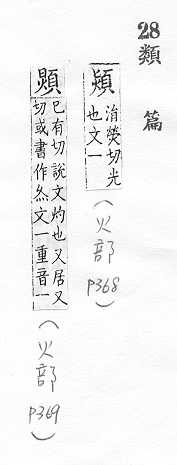 28類篇
熲 涓熒切光
也文一（火部P368）
己有切說文灼也又居又
切或書作灸文一重音一（火部P369）